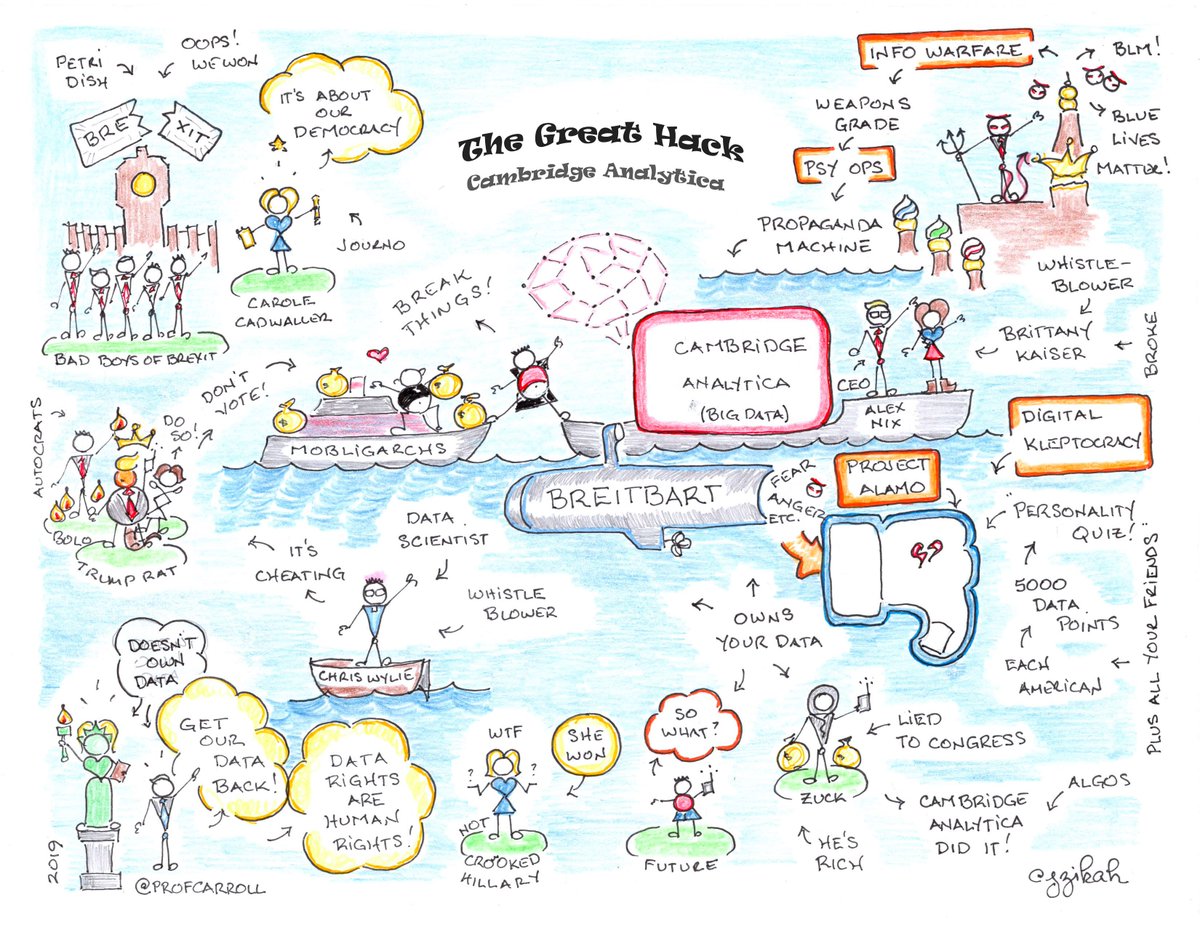 The Great Hack
Cambridge Analytica
PETRI
DISH
OOPS!
WE WON
BRE
XIT
BAD BOYS OF BREXIT
IT'S ABOUT
OUR
DEMOCRACY
JOURNO
CAROLE
CADWALLER
INFO WARFARE
BLM!
BLUE
LIVES
MATTER!
WEAPONS
GRADE
PSY OPS
PROPAGANDA
MACHINE
WHISTLE-
BLOWER
BRITTANY
KAISER
BROKE
BREAK
THINGS!
CAMBRIDGE
ANALYTICA
(BIG DATA)
CEO
ALEX
NIX
MOBLIGARCHS
DON'T
VOTE!
DO
SO!
AUTOCRATS
BOLO
TRUMP RAT
BREITBART
FEAR
ANGER
ETC.
PROJECT
ALAMO
DIGITAL
KLEPTOCRACY
"PERSONALITY
QUIZ!"
5000
DATA
POINTS
EACH
AMERICAN
PLUS ALL YOUR FRIENDS
IT'S
CHEATING
DATA
SCIENTIST
WHISTLE
BLOWER
CHRIS WYLIE
OWNS
YOUR DATA
DOESN'T
OWN
DATA
GET
OUR
DATA
BACK!
DATA
RIGHTS
ARE
HUMAN
RIGHTS!
2019
@PROFCARROLL
WTF
? ?
SHE
WON
NOT
CROOKED
HILLARY
SO
WHAT?
FUTURE
ZUCK
LIED
TO CONGRESS
HE'S
RICH
CAMBRIDGE
ANALYTICA
DID IT!
ALGOS
cgzikah